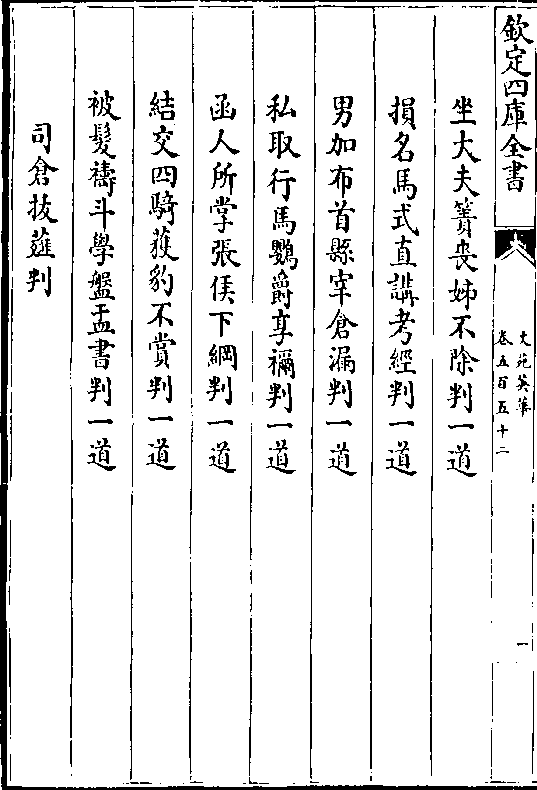 欽定四庫全書
文苑英華
卷五百五十二
一
坐大夫簀喪姊不除判一道
損名馬式直講考經判一道
男加布首縣宰倉漏判一道
私取行馬鸚爵享禰判一道
函人所掌張侯下綱判一道
結交四騎獲豹不賞判一道
被髮禱斗學盤盂書判一道
司倉拔薤判